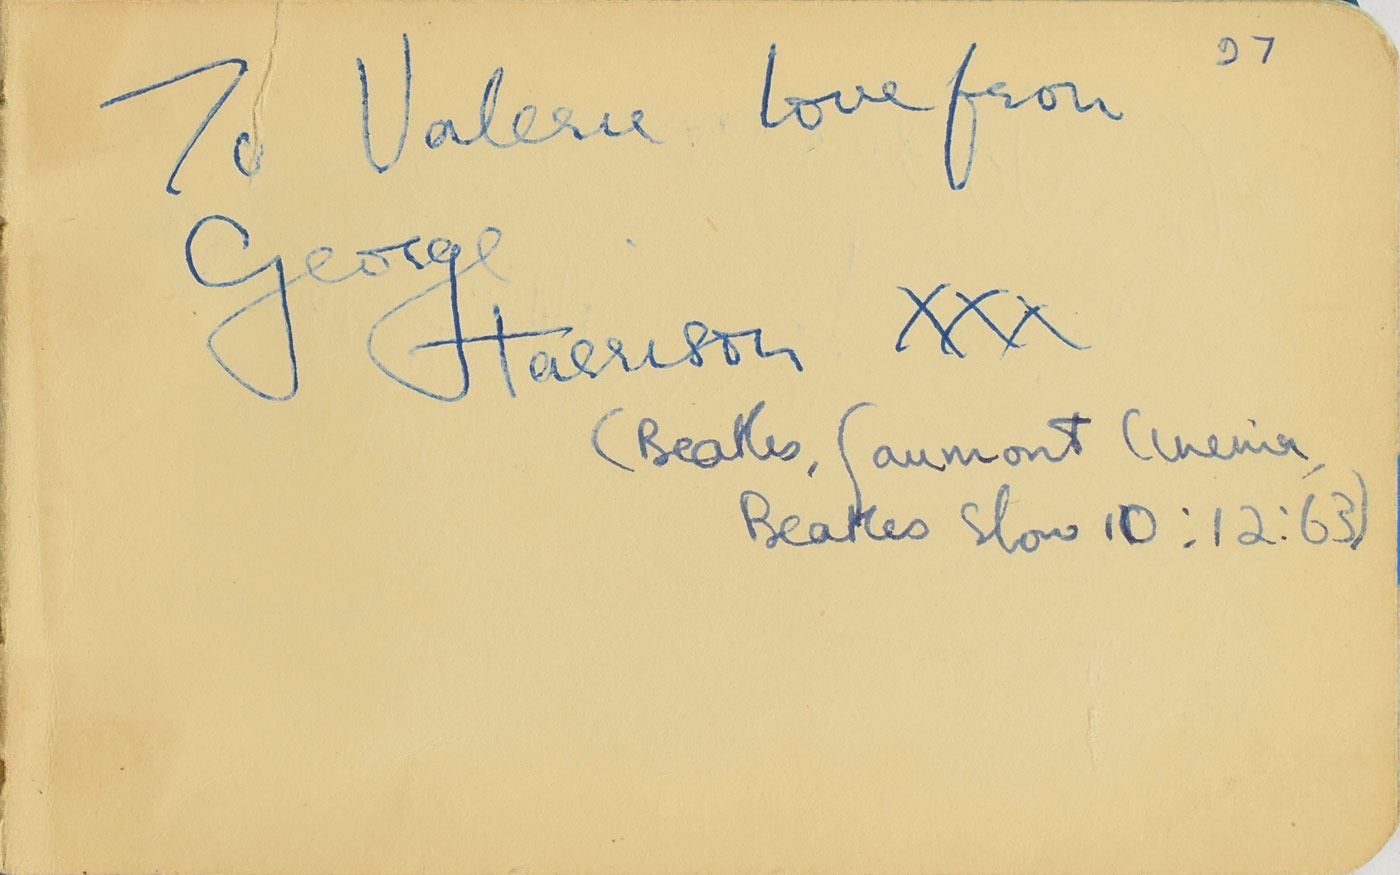 27
To Valerie love from
George
Harrison XXX
(Beatles, Gaumont Cinema,
Beatles Show 10:12:63)